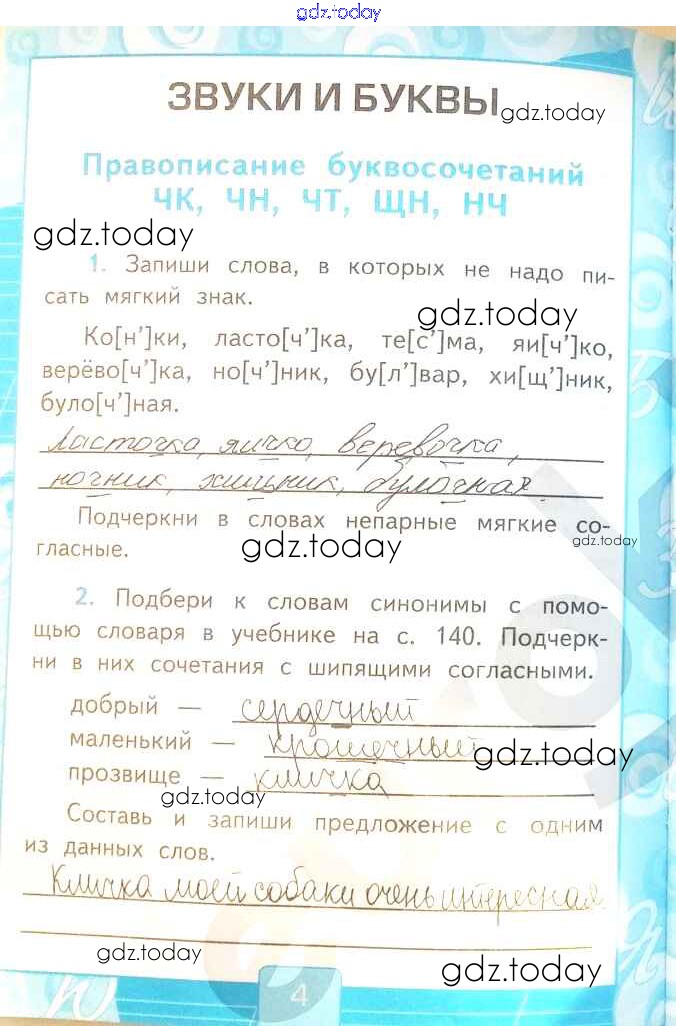 gdz.today
ЗВУКИ И БУКВЫ
gdz.today
Правописание буквосочетаний
ЧК, ЧН, ЧТ, ЩН, НЧ
gdz.today
1. Запиши слова, в которых не надо пи-
сать мягкий знак.
gdz.today
Ко[н’]ки, ласто[ч’]ка, те[с’]ма, яи[ч’]ко,
верёво[ч’]ка, но[ч’]ник, бу[л’]вар, хи[щ’]ник,
було[ч’]ная.
Ласточка, яичко, веревочка,
ночник, хищник, булочная.
Подчеркни в словах непарные мягкие со-
гласные.
gdz.today
gdz.today
2. Подбери к словам синонимы с помо-
щью словаря в учебнике на с. 140. Подчерк-
ни в них сочетания с шипящими согласными.
добрый — сердечный
маленький — крошечный
gdz.today
прозвище — кличка
gdz.today
Составь и запиши предложение с одним
из данных слов.
Кличка моей собаки очень интересная.
gdz.today
gdz.today
4